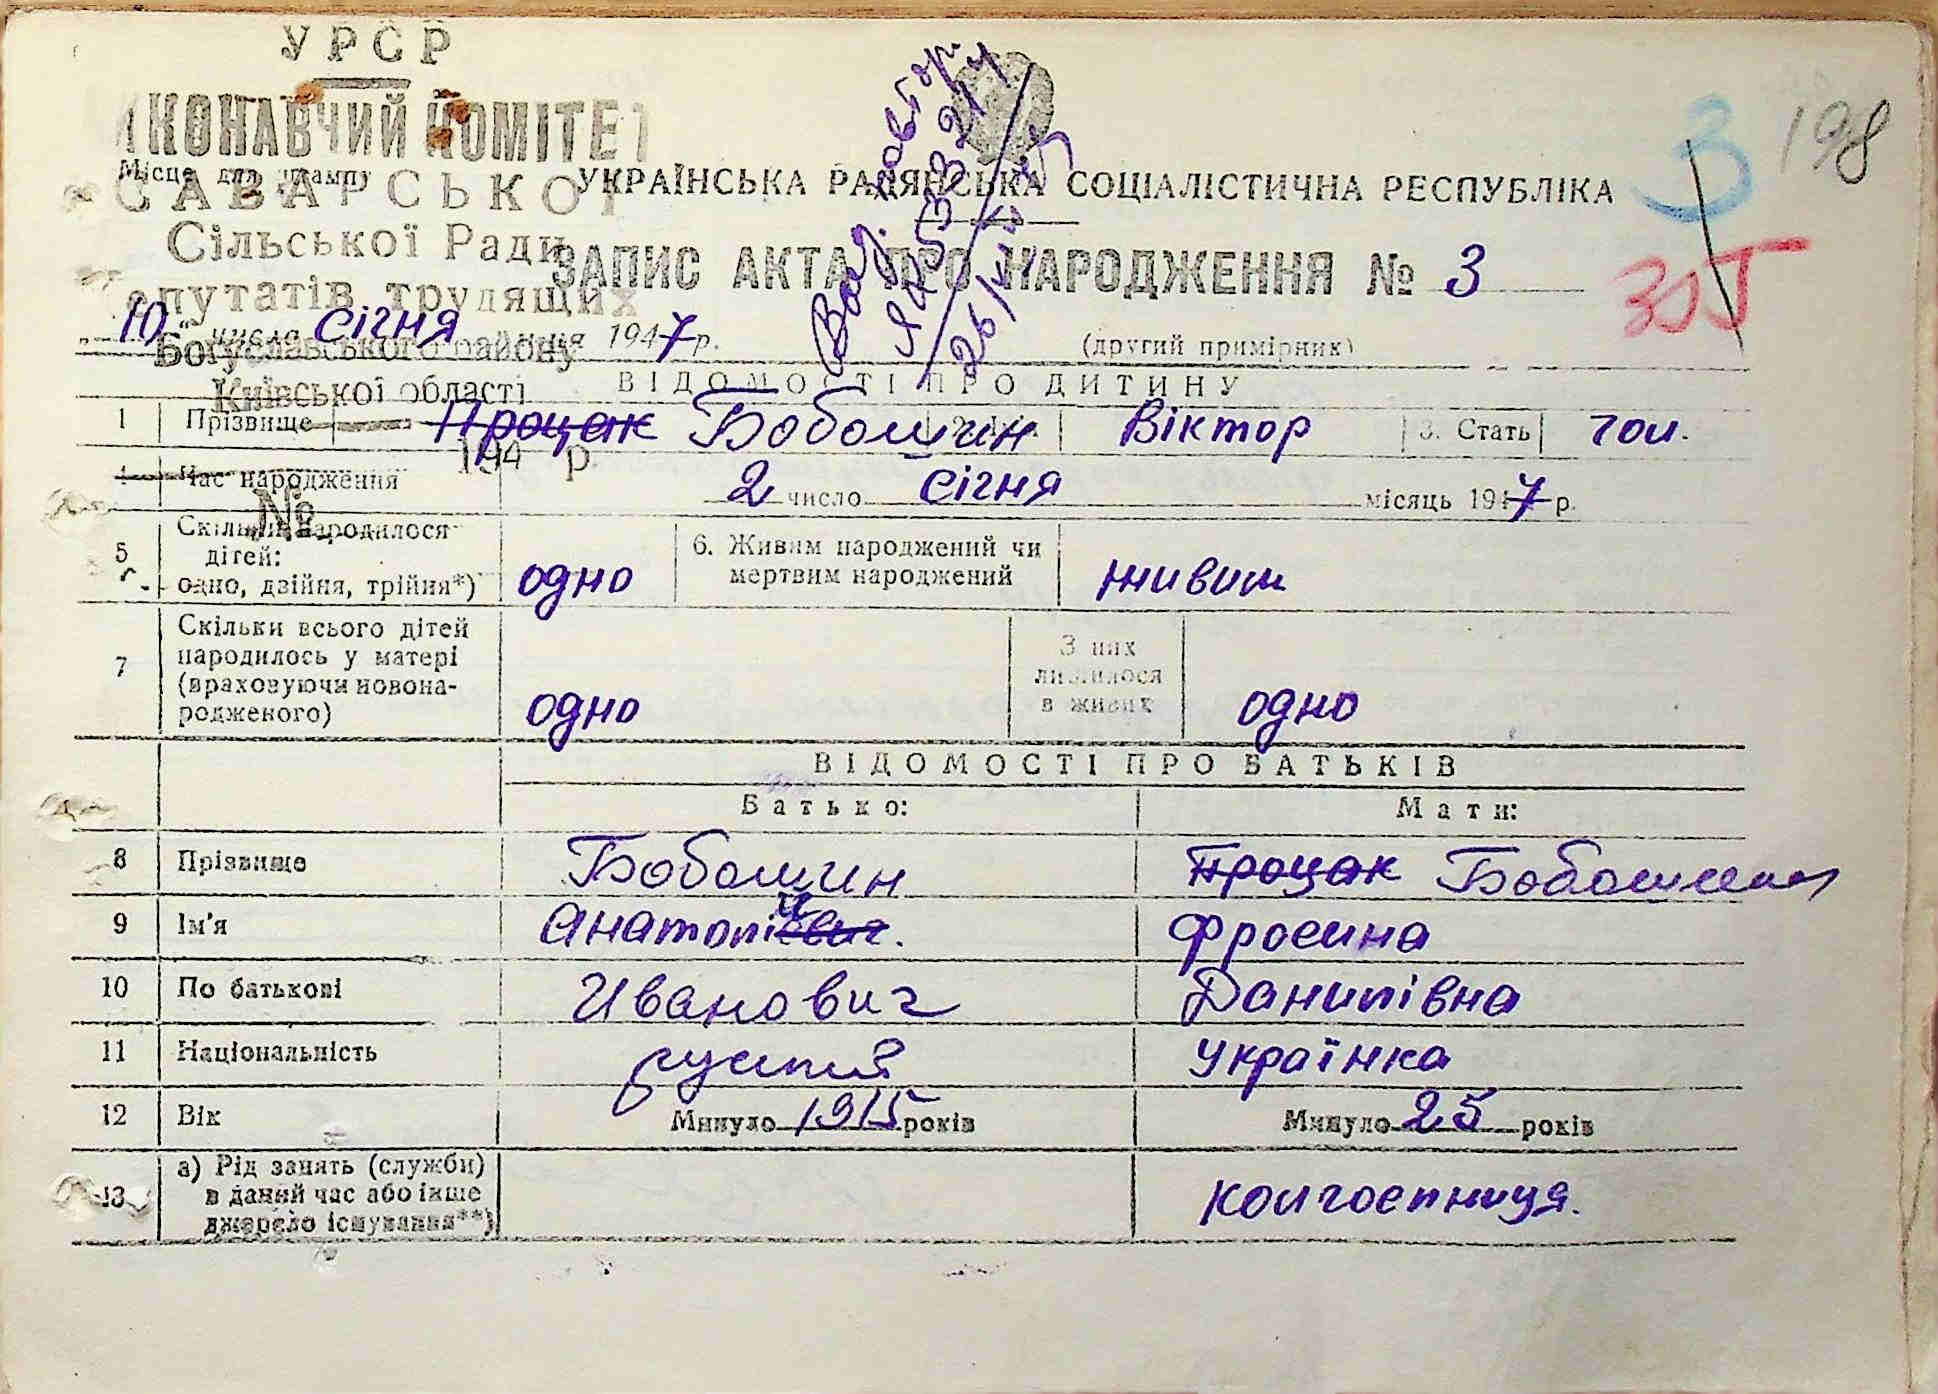 УРСР
ИКОНАВЧИЙ КОМІТЕТ
Місце для штампу
САВАРСЬКОЇ
Сільської Ради
депутатів трудящих
Богуславського району
Київської області
194 р.
№
3
198
УКРАЇНСЬКА РАДЯНСЬКА СОЦІАЛІСТИЧНА РЕСПУБЛІКА
ЗАПИС АКТА ПРО НАРОДЖЕННЯ № 3
„10" числа січня місяця 1947 р.
(другий примірник)
ВІДОМОСТІ ПРО ДИТИНУ
1 Прізвище Процак Бобошин 2. Ім'я Віктор 3. Стать чол.
4 Час народження 2 число січня місяць 1947 р.
5 Скільки народилося
дітей:
одно, двійня, трійня*) одно 6. Живим народжений чи
мертвим народжений живим
7 Скільки всього дітей
народилось у матері
(враховуючи новона-
родженого) одно З них
лишилося
в живих одно
ВІДОМОСТІ ПРО БАТЬКІВ
Батько: Мати:
8 Прізвище Бобошин Процак Бобошина
9 Ім'я Анатолій Фросина
10 По батькові Иванович Данилівна
11 Національність Українка
12 Вік Минуло 1915 років Минуло 25 років
13 а) Рід занять (служби)
в даний час або інше
джерело існування**) колгоспниця.